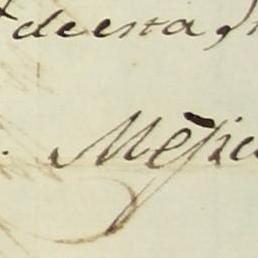 de esta
Mexic